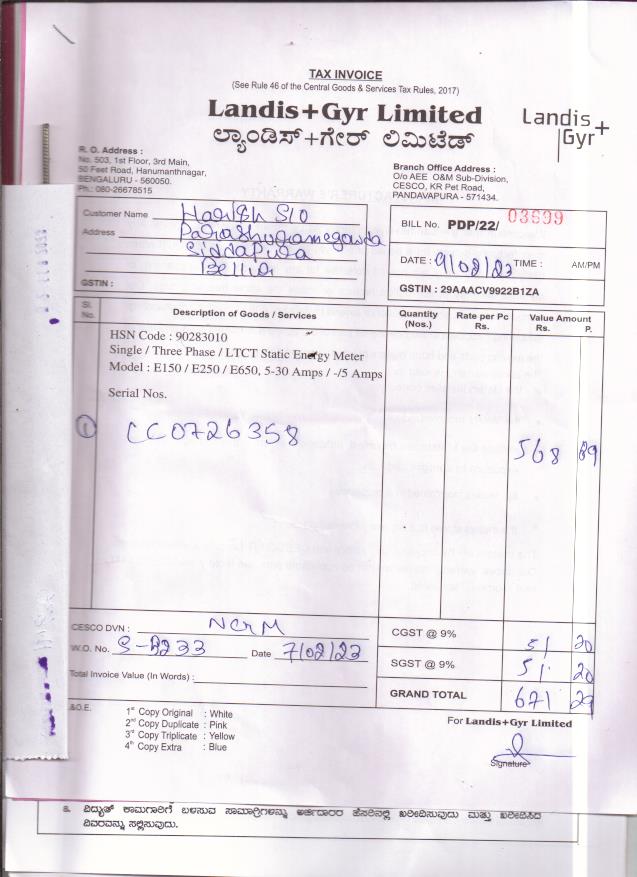 TAX INVOICE
(See Rule 46 of the Central Goods & Services Tax Rules, 2017)
Landis+Gyr Limited
ಲ್ಯಾಂಡಿಸ್+ಗೇರ್ ಲಿಮಿಟೆಡ್
Landis
Gyr+
R. O. Address :
No. 503, 1st Floor, 3rd Main,
50 Feet Road, Hanumanthnagar,
BENGALURU - 560050.
Ph.: 080-26678515
Branch Office Address :
O/o AEE O&M Sub-Division,
CESCO, KR Pet Road,
PANDAVAPURA - 571434.
Customer Name Harish S/O
Address Parashuramegowda
Siddapura
Bellur
GSTIN :
BILL No. PDP/22/ 03599
DATE : 9/02/23 TIME : AM/PM
GSTIN : 29AAACV9922B1ZA
Sl. No. Description of Goods / Services Quantity (Nos.) Rate per Pc Rs. Value Amount Rs. P.
HSN Code : 90283010
Single / Three Phase / LTCT Static Energy Meter
Model : E150 / E250 / E650, 5-30 Amps / -/5 Amps
Serial Nos.
1 CC0726358 568 89
CESCO DVN : NCRM
W.O. No. S-8233 Date 7/02/23
Total Invoice Value (In Words) :
CGST @ 9% 51 20
SGST @ 9% 51 20
GRAND TOTAL 671 29
&.O.E.
1st Copy Original : White
2nd Copy Duplicate : Pink
3rd Copy Triplicate : Yellow
4th Copy Extra : Blue
For Landis+Gyr Limited
Signature
೩. ವಿದ್ಯುತ್ ಕಾಮಗಾರಿಗೆ ಬಳಸುವ ಸಾಮಾಗ್ರಿಗಳನ್ನು ಅರ್ಜಿದಾರರ ಹೆಸರಿನಲ್ಲಿ ಖರೀದಿಸುವುದು ಮತ್ತು ಖರೀದಿಸಿದ
ವಿವರವನ್ನು ಸಲ್ಲಿಸುವುದು.